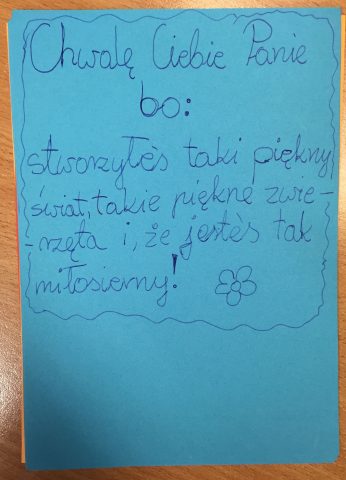 Chwalę Ciebie Panie
bo:
stworzyłeś taki piękny
świat, takie piękne zwie-
-rzęta i, że jesteś tak
miłosierny!